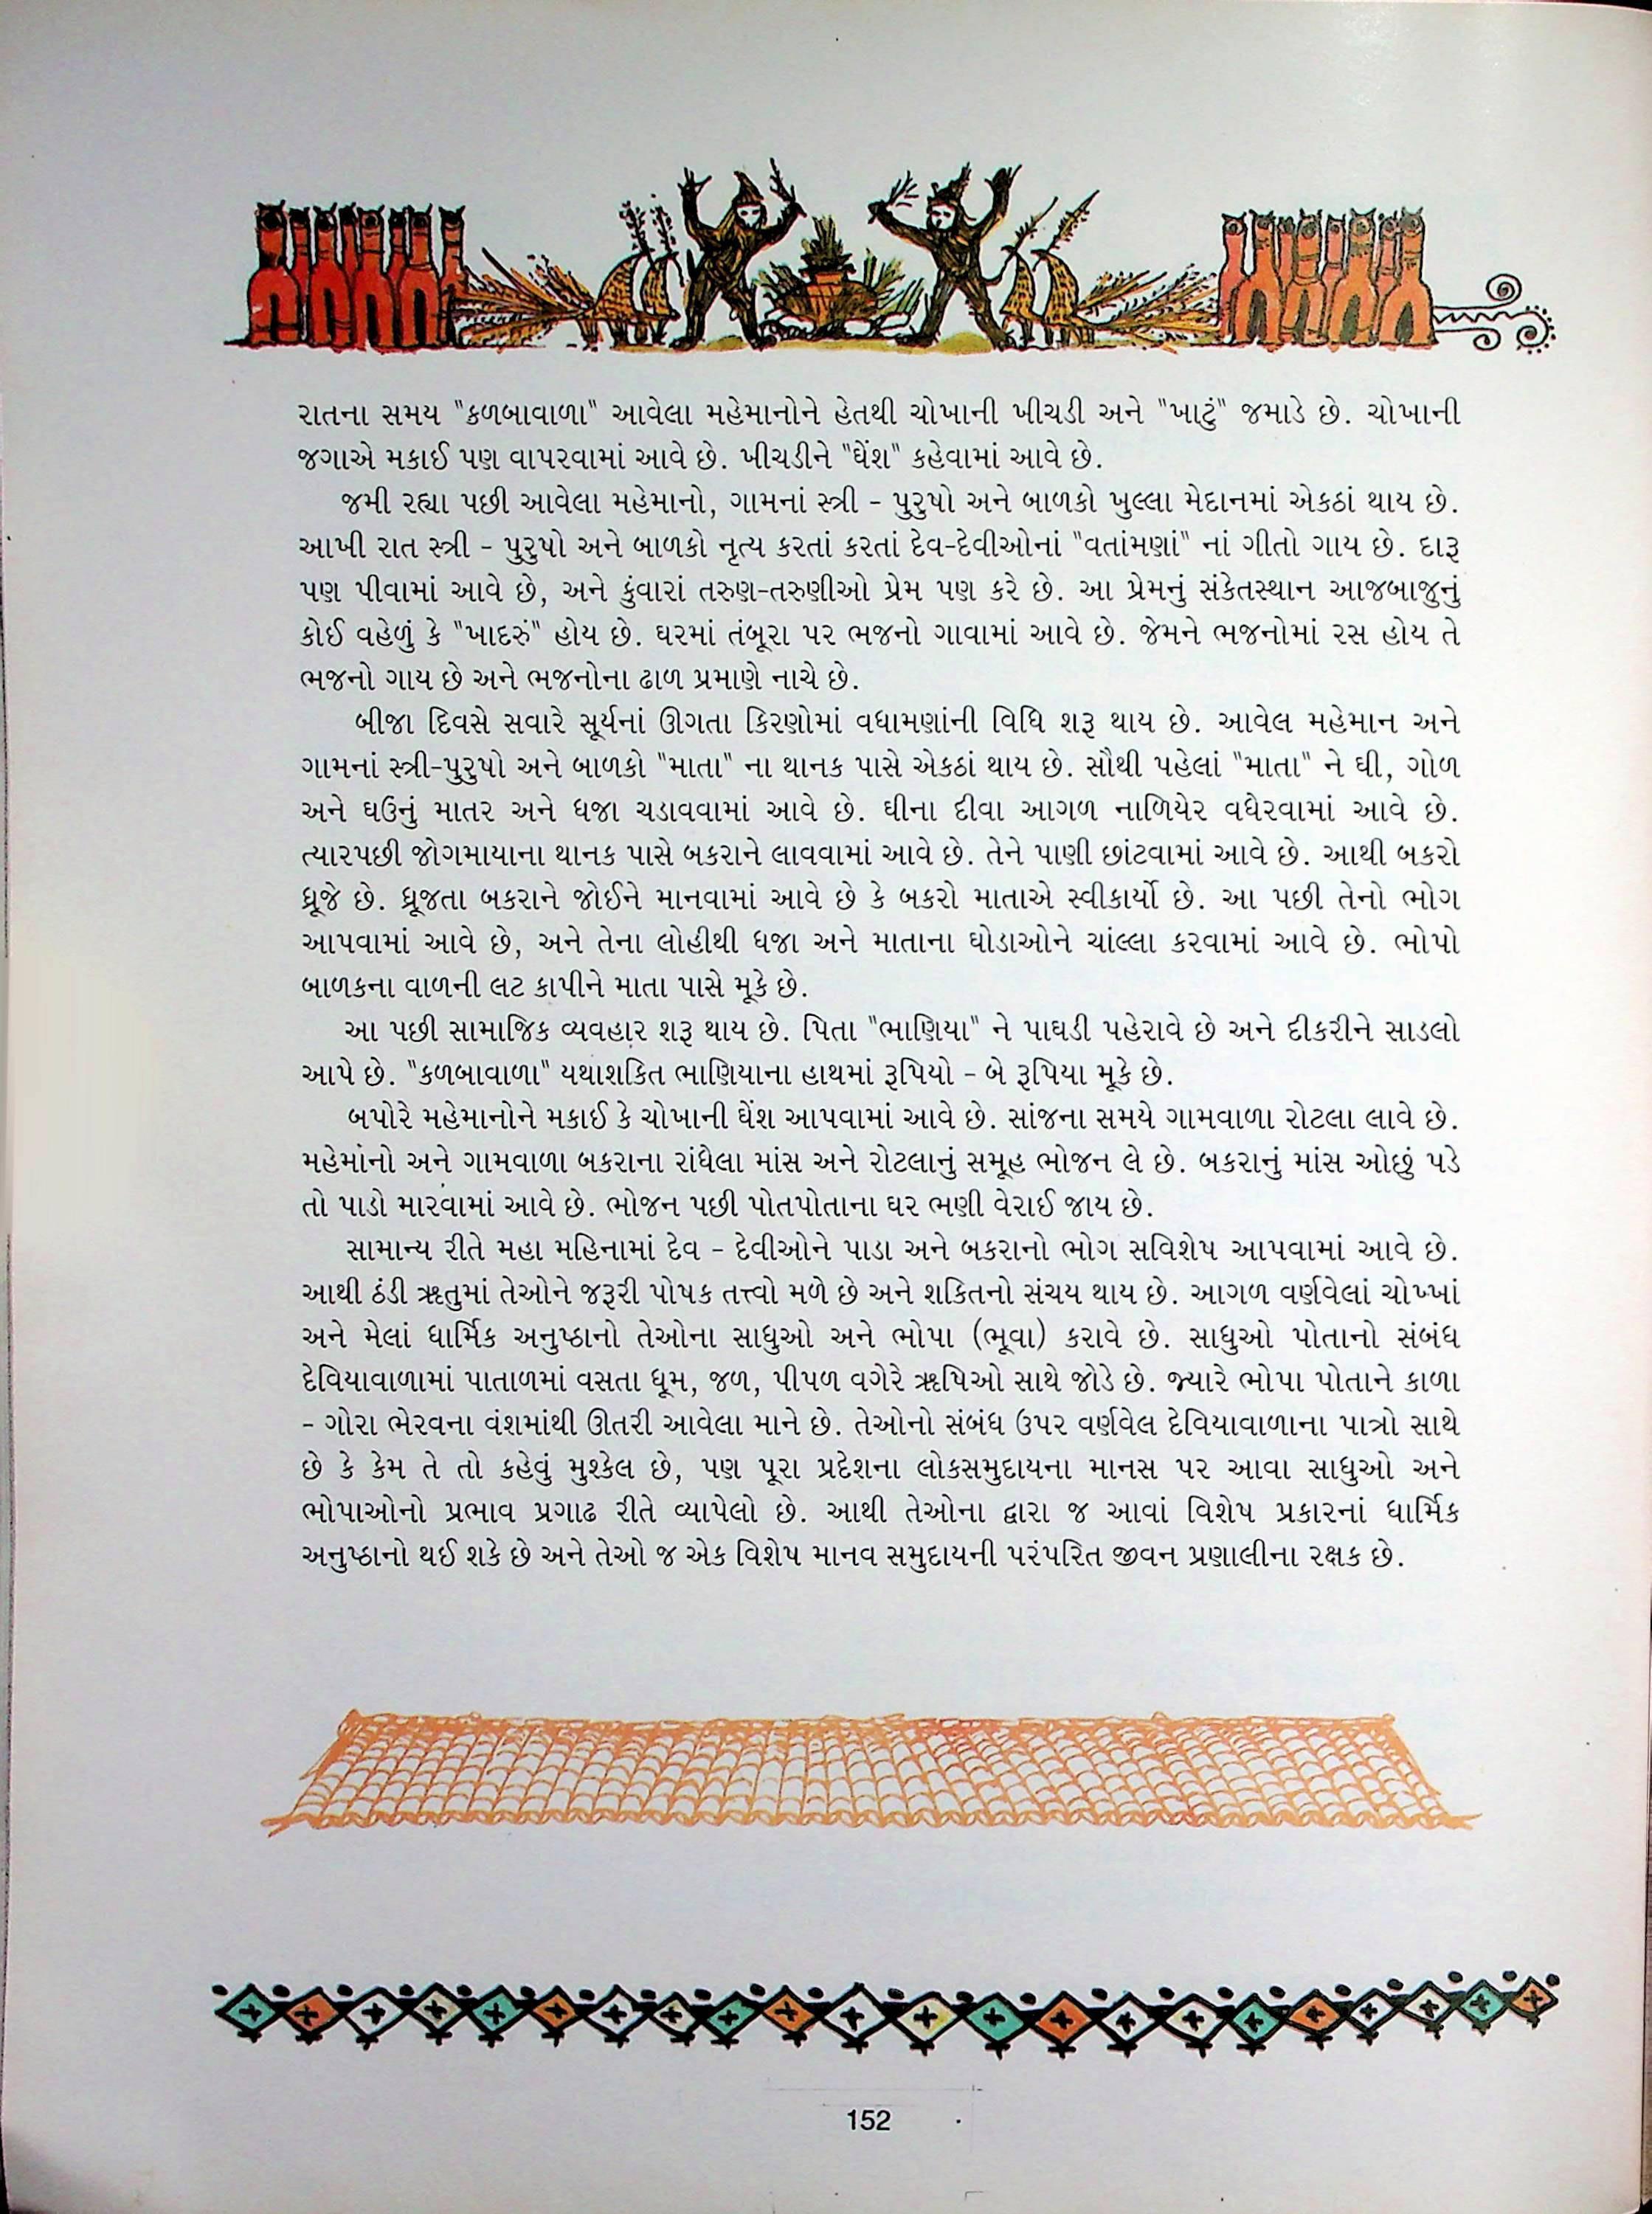 રાતના સમય "કળબાવાળા" આવેલા મહેમાનોને હેતથી ચોખાની ખીચડી અને "ખાટું" જમાડે છે. ચોખાની
જગાએ મકાઈ પણ વાપરવામાં આવે છે. ખીચડીને "ઘેંશ" કહેવામાં આવે છે.
જમી રહ્યા પછી આવેલા મહેમાનો, ગામનાં સ્ત્રી - પુરુષો અને બાળકો ખુલ્લા મેદાનમાં એકઠાં થાય છે.
આખી રાત સ્ત્રી - પુરુષો અને બાળકો નૃત્ય કરતાં કરતાં દેવ-દેવીઓનાં "વતાંમણાં" નાં ગીતો ગાય છે. દારૂ
પણ પીવામાં આવે છે, અને કુંવારાં તરુણ-તરુણીઓ પ્રેમ પણ કરે છે. આ પ્રેમનું સંકેતસ્થાન આજબાજુનું
કોઈ વહેળું કે "ખાદરું" હોય છે. ઘરમાં તંબૂરા પર ભજનો ગાવામાં આવે છે. જેમને ભજનોમાં રસ હોય તે
ભજનો ગાય છે અને ભજનોના ઢાળ પ્રમાણે નાચે છે.
બીજા દિવસે સવારે સૂર્યનાં ઊગતા કિરણોમાં વધામણાંની વિધિ શરૂ થાય છે. આવેલ મહેમાન અને
ગામનાં સ્ત્રી-પુરુષો અને બાળકો "માતા" ના થાનક પાસે એકઠાં થાય છે. સૌથી પહેલાં "માતા" ને ઘી, ગોળ
અને ઘઉંનું માતર અને ધજા ચડાવવામાં આવે છે. ઘીના દીવા આગળ નાળિયેર વધેરવામાં આવે છે.
ત્યારપછી જોગમાયાના થાનક પાસે બકરાને લાવવામાં આવે છે. તેને પાણી છાંટવામાં આવે છે. આથી બકરો
ધ્રૂજે છે. ધ્રૂજતા બકરાને જોઈને માનવામાં આવે છે કે બકરો માતાએ સ્વીકાર્યો છે. આ પછી તેનો ભોગ
આપવામાં આવે છે, અને તેના લોહીથી ધજા અને માતાના ઘોડાઓને ચાંલ્લા કરવામાં આવે છે. ભોપો
બાળકના વાળની લટ કાપીને માતા પાસે મૂકે છે.
આ પછી સામાજિક વ્યવહાર શરૂ થાય છે. પિતા "ભાણિયા" ને પાઘડી પહેરાવે છે અને દીકરીને સાડલો
આપે છે. "કળબાવાળા" યથાશકિત ભાણિયાના હાથમાં રૂપિયો - બે રૂપિયા મૂકે છે.
બપોરે મહેમાનોને મકાઈ કે ચોખાની ઘેંશ આપવામાં આવે છે. સાંજના સમયે ગામવાળા રોટલા લાવે છે.
મહેમાંનો અને ગામવાળા બકરાના રાંધેલા માંસ અને રોટલાનું સમૂહ ભોજન લે છે. બકરાનું માંસ ઓછું પડે
તો પાડો મારવામાં આવે છે. ભોજન પછી પોતપોતાના ઘર ભણી વેરાઈ જાય છે.
સામાન્ય રીતે મહા મહિનામાં દેવ - દેવીઓને પાડા અને બકરાનો ભોગ સવિશેષ આપવામાં આવે છે.
આથી ઠંડી ઋતુમાં તેઓને જરૂરી પોષક તત્ત્વો મળે છે અને શકિતનો સંચય થાય છે. આગળ વર્ણવેલાં ચોખ્ખાં
અને મેલાં ધાર્મિક અનુષ્ઠાનો તેઓના સાધુઓ અને ભોપા (ભૂવા) કરાવે છે. સાધુઓ પોતાનો સંબંધ
દેવિયાવાળામાં પાતાળમાં વસતા ધૂમ, જળ, પીપળ વગેરે ઋષિઓ સાથે જોડે છે. જ્યારે ભોપા પોતાને કાળા
- ગોરા ભેરવના વંશમાંથી ઊતરી આવેલા માને છે. તેઓનો સંબંધ ઉપર વર્ણવેલ દેવિયાવાળાના પાત્રો સાથે
છે કે કેમ તે તો કહેવું મુશ્કેલ છે, પણ પૂરા પ્રદેશના લોકસમુદાયના માનસ પર આવા સાધુઓ અને
ભોપાઓનો પ્રભાવ પ્રગાઢ રીતે વ્યાપેલો છે. આથી તેઓના દ્વારા જ આવાં વિશેષ પ્રકારનાં ધાર્મિક
અનુષ્ઠાનો થઈ શકે છે અને તેઓ જ એક વિશેષ માનવ સમુદાયની પરંપરિત જીવન પ્રણાલીના રક્ષક છે.
152